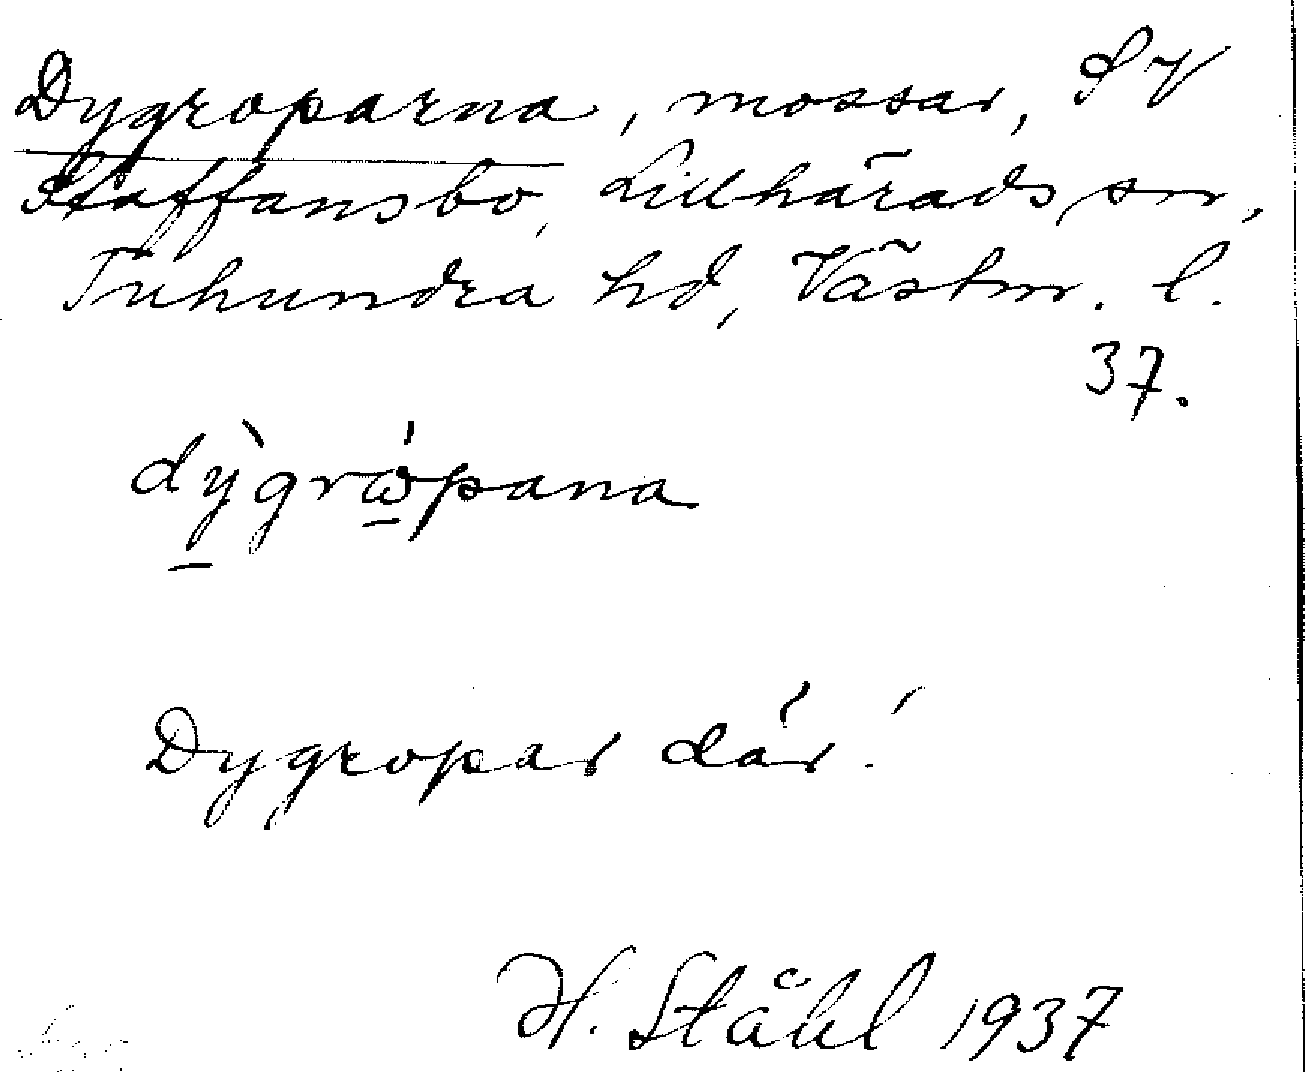 Dygroparna, mossar, SV
Staffansbo, Lillhärads sn,
Tuhundra hd, Västm. l.
37.
dỳgrω̇pana
Dygropar där!
H. Ståhl 1937